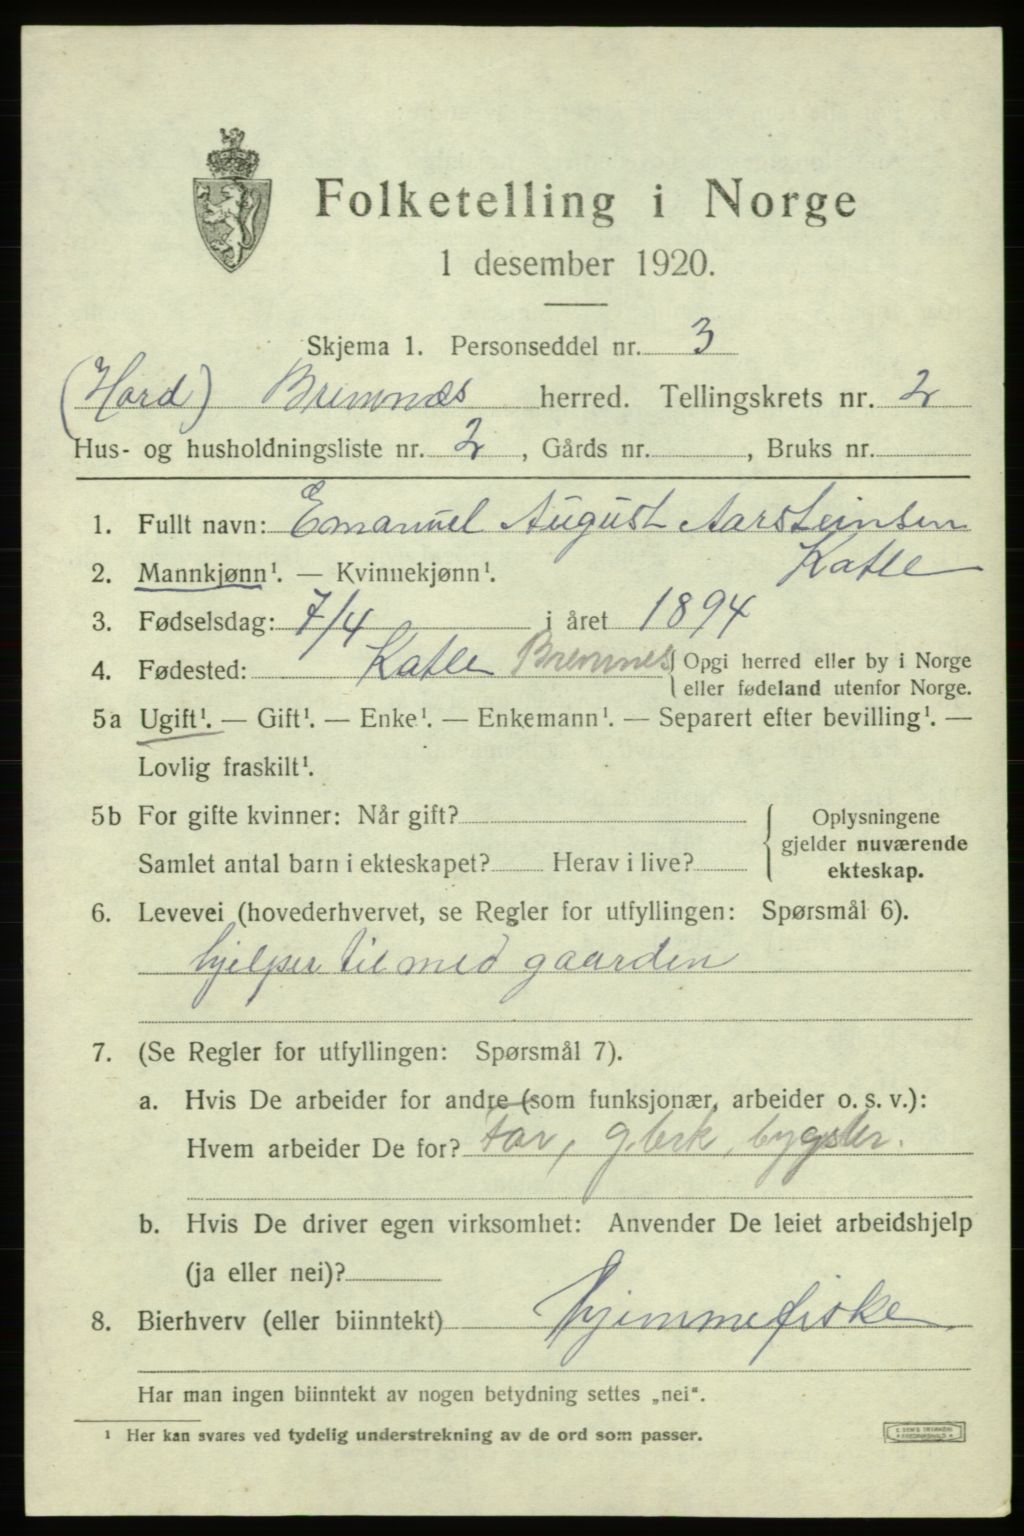 Folketelling i Norge
1 desember 1920.
Skjema 1. Personseddel nr. 3
(Hord) Bremnæs herred. Tellingskrets nr. 2
Hus- og husholdningsliste nr. 2, Gårds nr. , Bruks nr.
1. Fullt navn: Emanuel August Aarsteinsen
Katle
2. Mannkjønn¹. — Kvinnekjønn¹.
3. Fødselsdag: 7/4 i året 1894
4. Fødested: Katle Bremnes { Opgi herred eller by i Norge
eller fødeland utenfor Norge.
5a Ugift¹. — Gift¹. — Enke¹. — Enkemann¹. — Separert efter bevilling¹. —
Lovlig fraskilt¹.
5b For gifte kvinner: Når gift?
Samlet antal barn i ekteskapet? Herav i live?
Oplysningene
gjelder nuværende
ekteskap.
6. Levevei (hovederhvervet, se Regler for utfyllingen: Spørsmål 6).
hjelper til med gaarden
7. (Se Regler for utfyllingen: Spørsmål 7).
a. Hvis De arbeider for andre (som funksjonær, arbeider o. s. v.):
Hvem arbeider De for? Far, gbrk, bygsler.
b. Hvis De driver egen virksomhet: Anvender De leiet arbeidshjelp
(ja eller nei)?
8. Bierhverv (eller biinntekt) hjemmefiske
Har man ingen biinntekt av nogen betydning settes „nei".
¹ Her kan svares ved tydelig understrekning av de ord som passer.